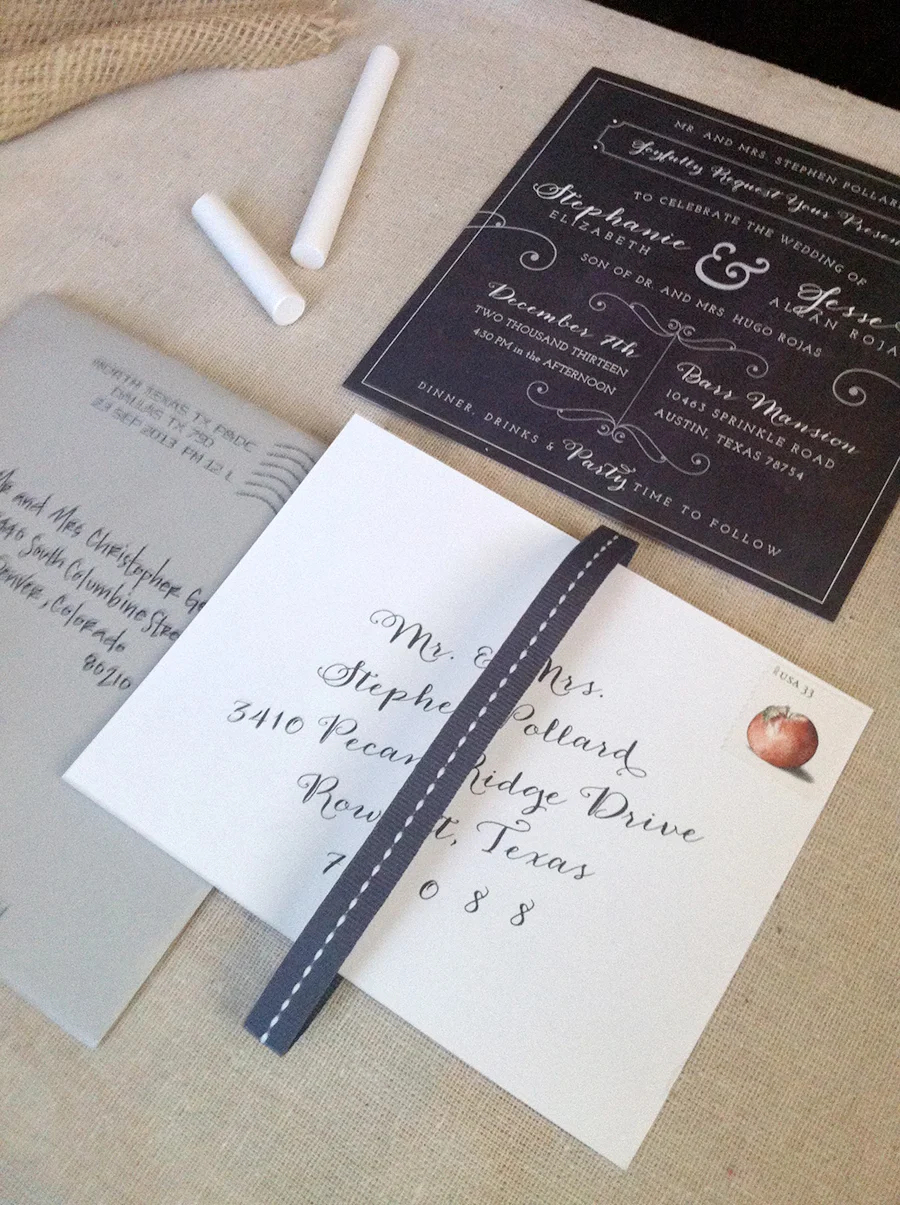 MR. AND MRS. STEPHEN POLLARD
Joyfully Request Your Presen
TO CELEBRATE THE WEDDING OF
Stephanie
ELIZABETH
&
Jesse
ALAN ROJA
SON OF DR. AND MRS. HUGO ROJAS
December 7th
TWO THOUSAND THIRTEEN
4:30 PM in the AFTERNOON
Barr Mansion
10463 SPRINKLE ROAD
AUSTIN, TEXAS 78754
DINNER, DRINKS & Party TIME TO FOLLOW
NORTH TEXAS TX P&DC
DALLAS TX 750
23 SEP 2013 PM 12 L
Mr and Mrs Christopher Ge
South Columbine Stre
Denver, Colorado
80210
USA 33
Mr. & Mrs.
Stephe Pollard
3410 Pecan Ridge Drive
Row t, Texas
7 0 8 8